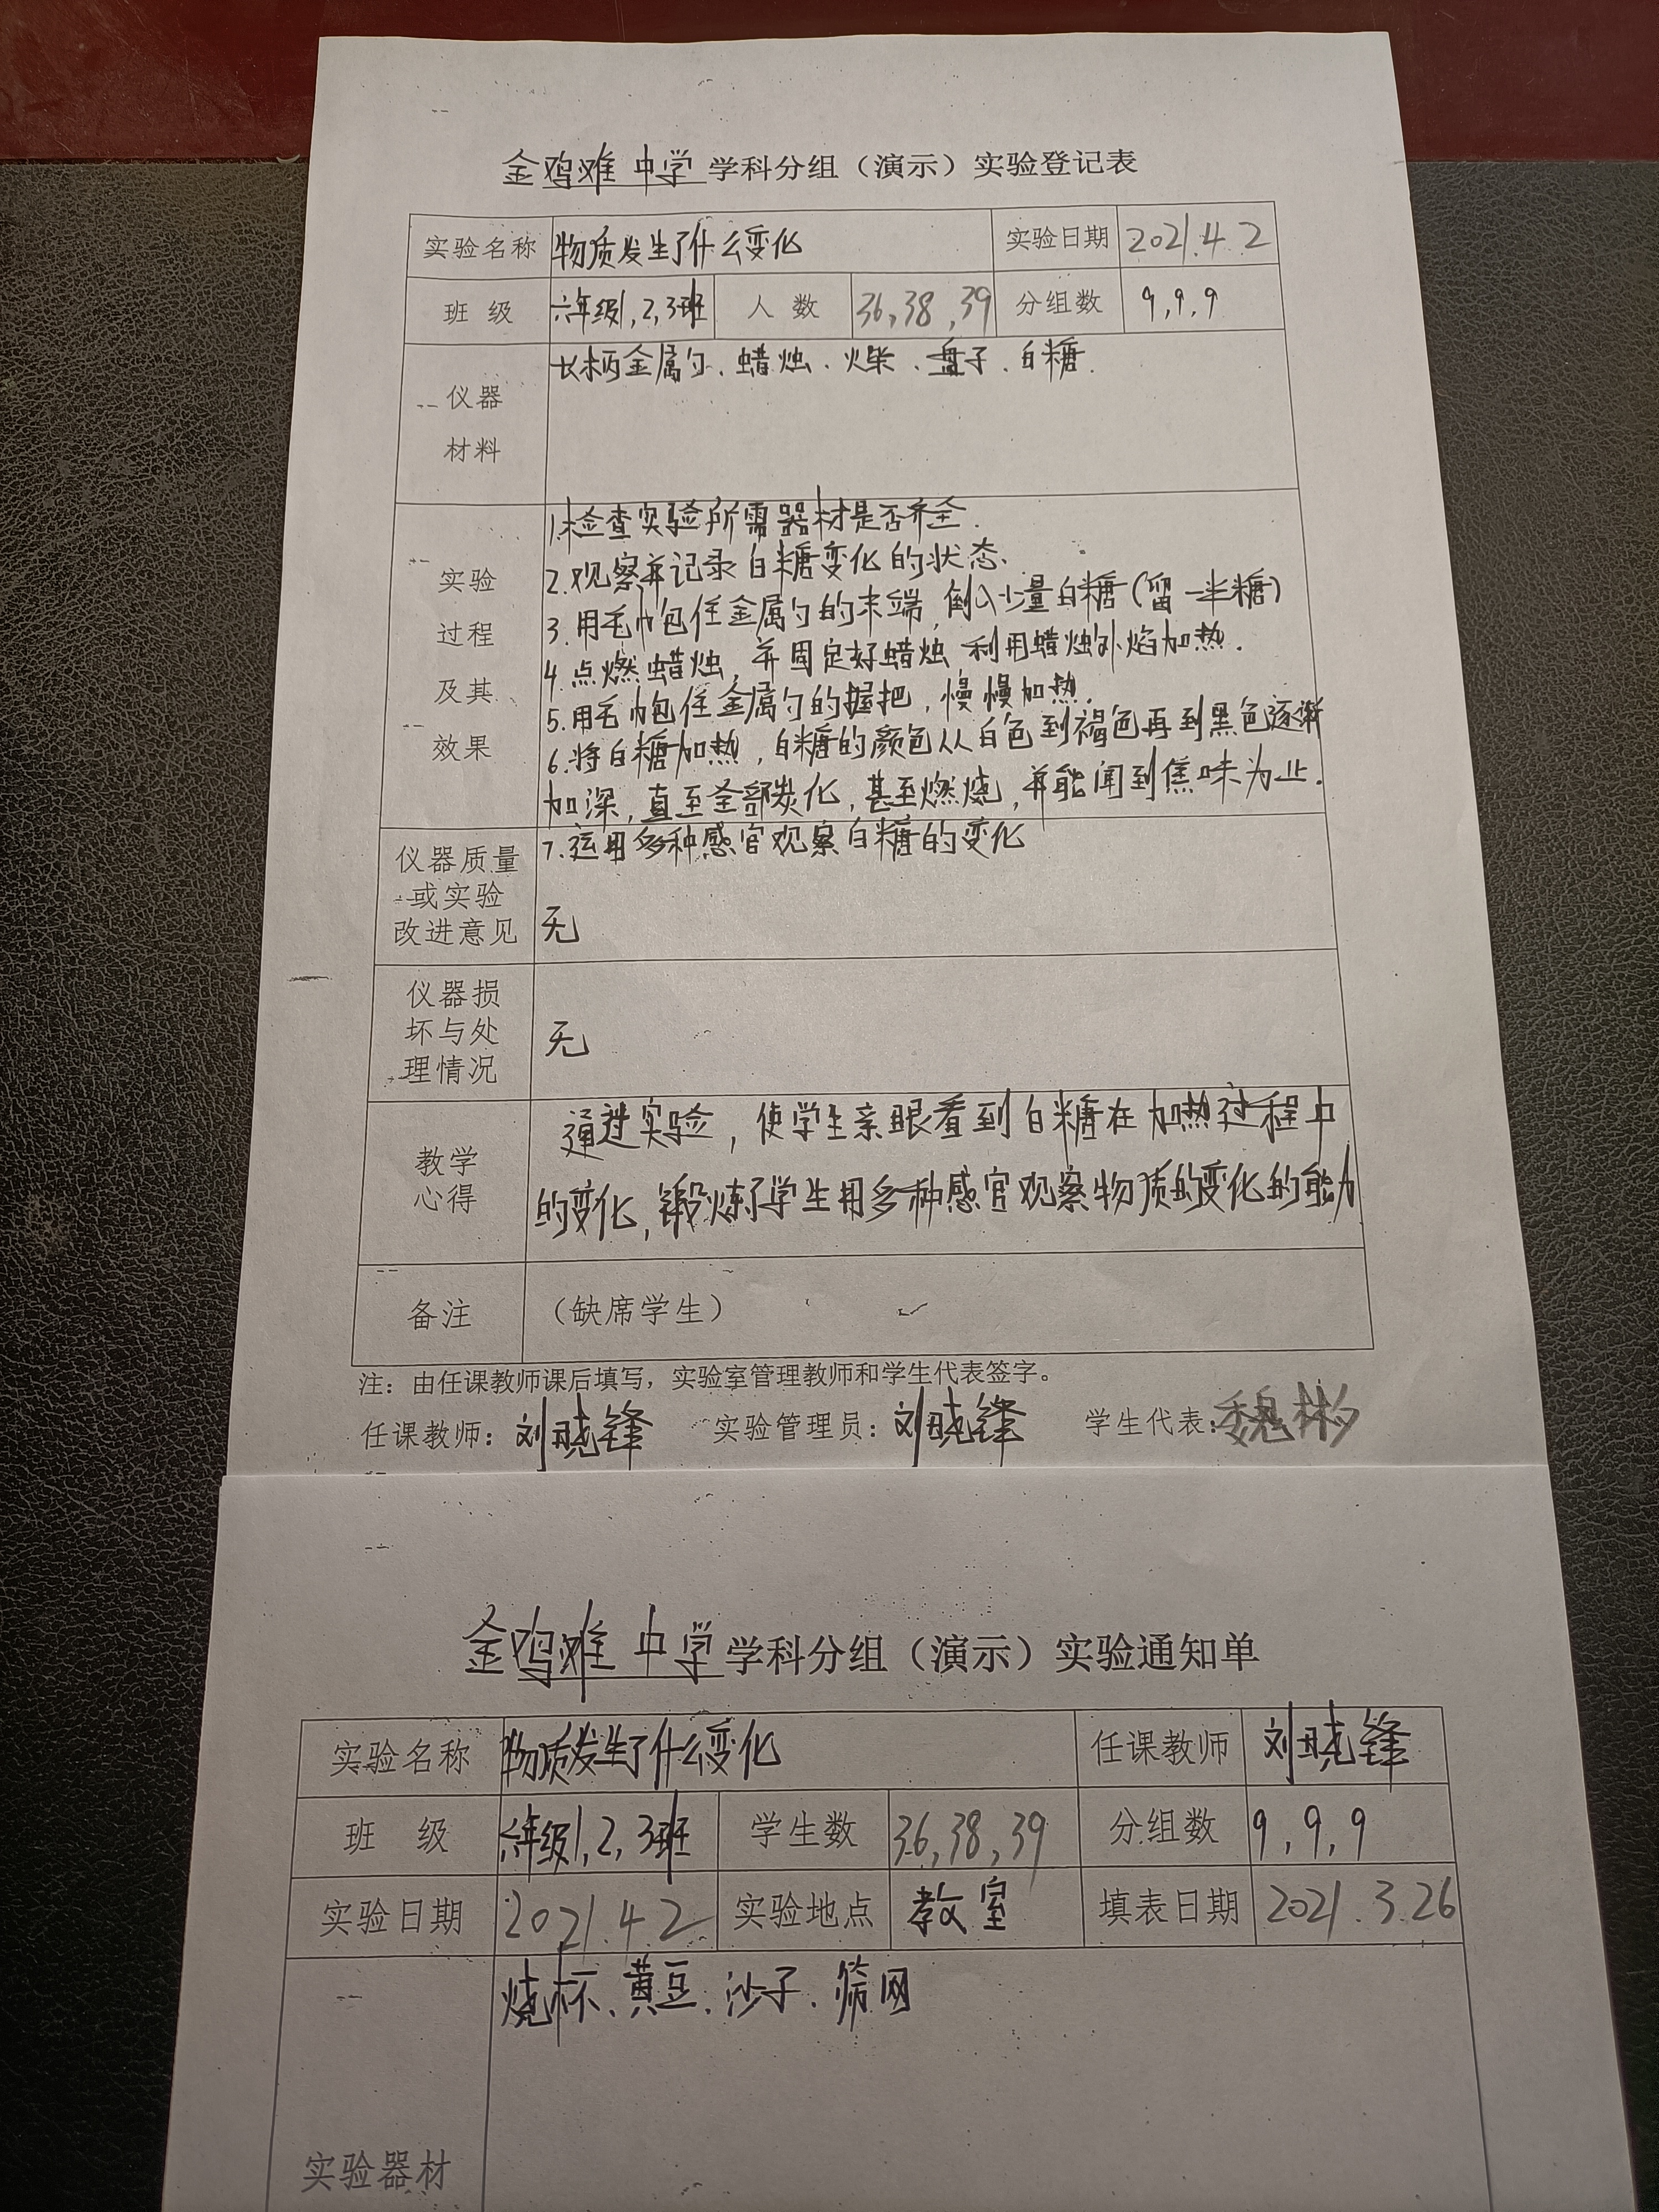 金鸡滩中学学科分组（演示）实验登记表
实验名称 物质发生了什么变化 实验日期 2021.4.2
班级 六年级1,2,3班 人数 36,38,39 分组数 9,9,9
仪器材料 长柄金属勺、蜡烛、火柴、盘子、白糖.
实验过程及其效果
1.检查实验所需器材是否齐全.
2.观察并记录白糖变化的状态、
3.用毛巾包住金属勺的末端,倒入少量白糖(留一半糖)
4.点燃蜡烛,并固定好蜡烛,利用蜡烛外焰加热.
5.用毛巾包住金属勺的握把,慢慢加热.
6.将白糖加热,白糖的颜色从白色到褐色再到黑色逐渐
加深,直至全部炭化,甚至燃烧,并能闻到焦味为止.
7.运用多种感官观察白糖的变化
仪器质量
或实验
改进意见
无
仪器损
坏与处
理情况
无
教学
心得
通过实验,使学生亲眼看到白糖在加热过程中
的变化,锻炼了学生用多种感官观察物质的变化的能力
备注 （缺席学生）
注：由任课教师课后填写，实验室管理教师和学生代表签字。
任课教师：刘晓锋 实验管理员：刘晓锋 学生代表：魏彬
金鸡滩中学学科分组（演示）实验通知单
实验名称 物质发生了什么变化 任课教师 刘晓锋
班级 六年级1,2,3班 学生数 36,38,39 分组数 9,9,9
实验日期 2021.4.2 实验地点 教室 填表日期 2021.3.26
烧杯、黄豆、沙子、筛网
实验器材